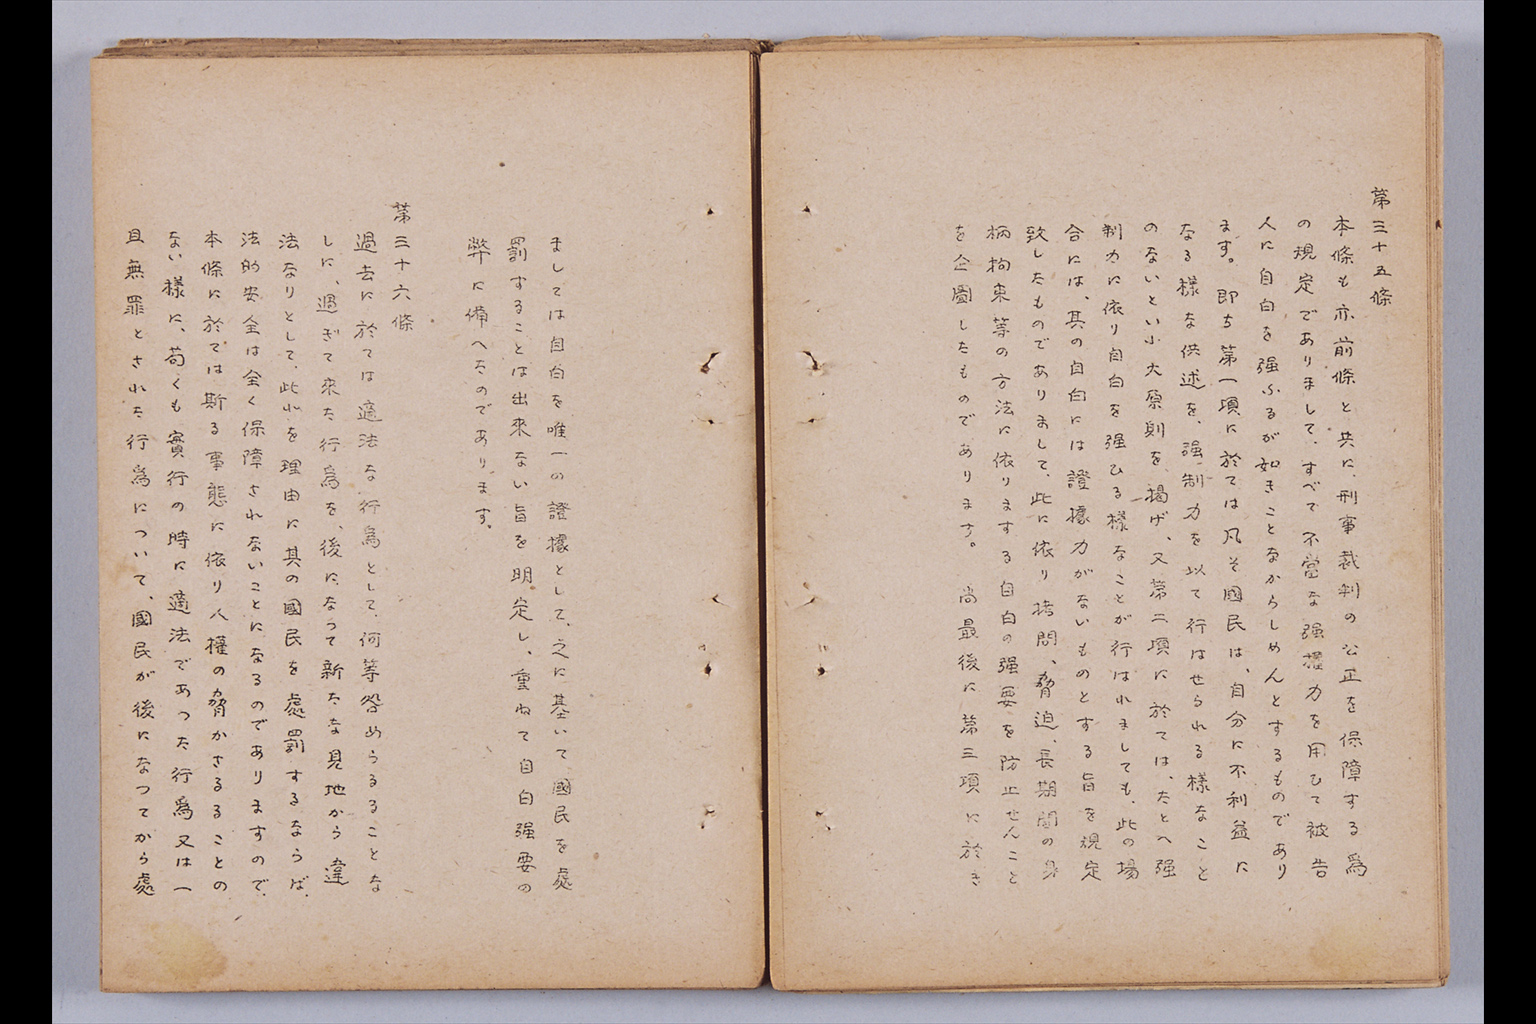 第三十五條
本條も亦前條と共に、刑事裁判の公正を保障する爲
の規定でありまして、すべて不當な强權力を用ひて被告
人に自白を强ふるが如きことなからしめんとするものであり
ます。即ち第一項に於ては凡そ國民は、自分に不利益に
なる樣な供述を、强制力を以て行はせられる樣なこと
のないといふ大原則を揭げ、又第二項に於ては、たとへ强
制力に依り自白を强ひる樣なことが行はれましても、此の場
合には、其の自白には證據力がないものとする旨を規定
致したものでありまして、此に依り拷問、脅迫、長期間の身
柄拘束等の方法に依りまする自白の强要を防止せんこと
を企圖したものであります。尚最後に第三項に於き
ましては自白を唯一の證據として、之に基いて國民を處
罰することは出來ない旨を明定し、重ねて自白强要の
弊に備へたのであります。
第三十六條
過去に於ては適法な行爲として、何等咎めらるることな
しに、過ぎて來た行爲を、後になって新たな見地から違
法なりとして、此れを理由に其の國民を處罰するならば、
法的安全は全く保障されないことになるのでありますので、
本條に於ては斯る事態に依り人權の脅かさるることの
ない樣に、苟くも實行の時に適法であつた行爲又は一
旦無罪とされた行爲について、國民が後になつてから處